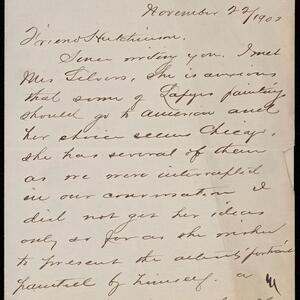 November 22/1902
Friend Hutchinson.
Since writing you. I met
Mrs she is anxious
that some of paintings
should go to America and
her choice seems Chicago,
she has several of them
as we were interrupted
in our conversation I
did not get her ideas
only so far as she wishes
to present the artists portrait
painted by himself. a